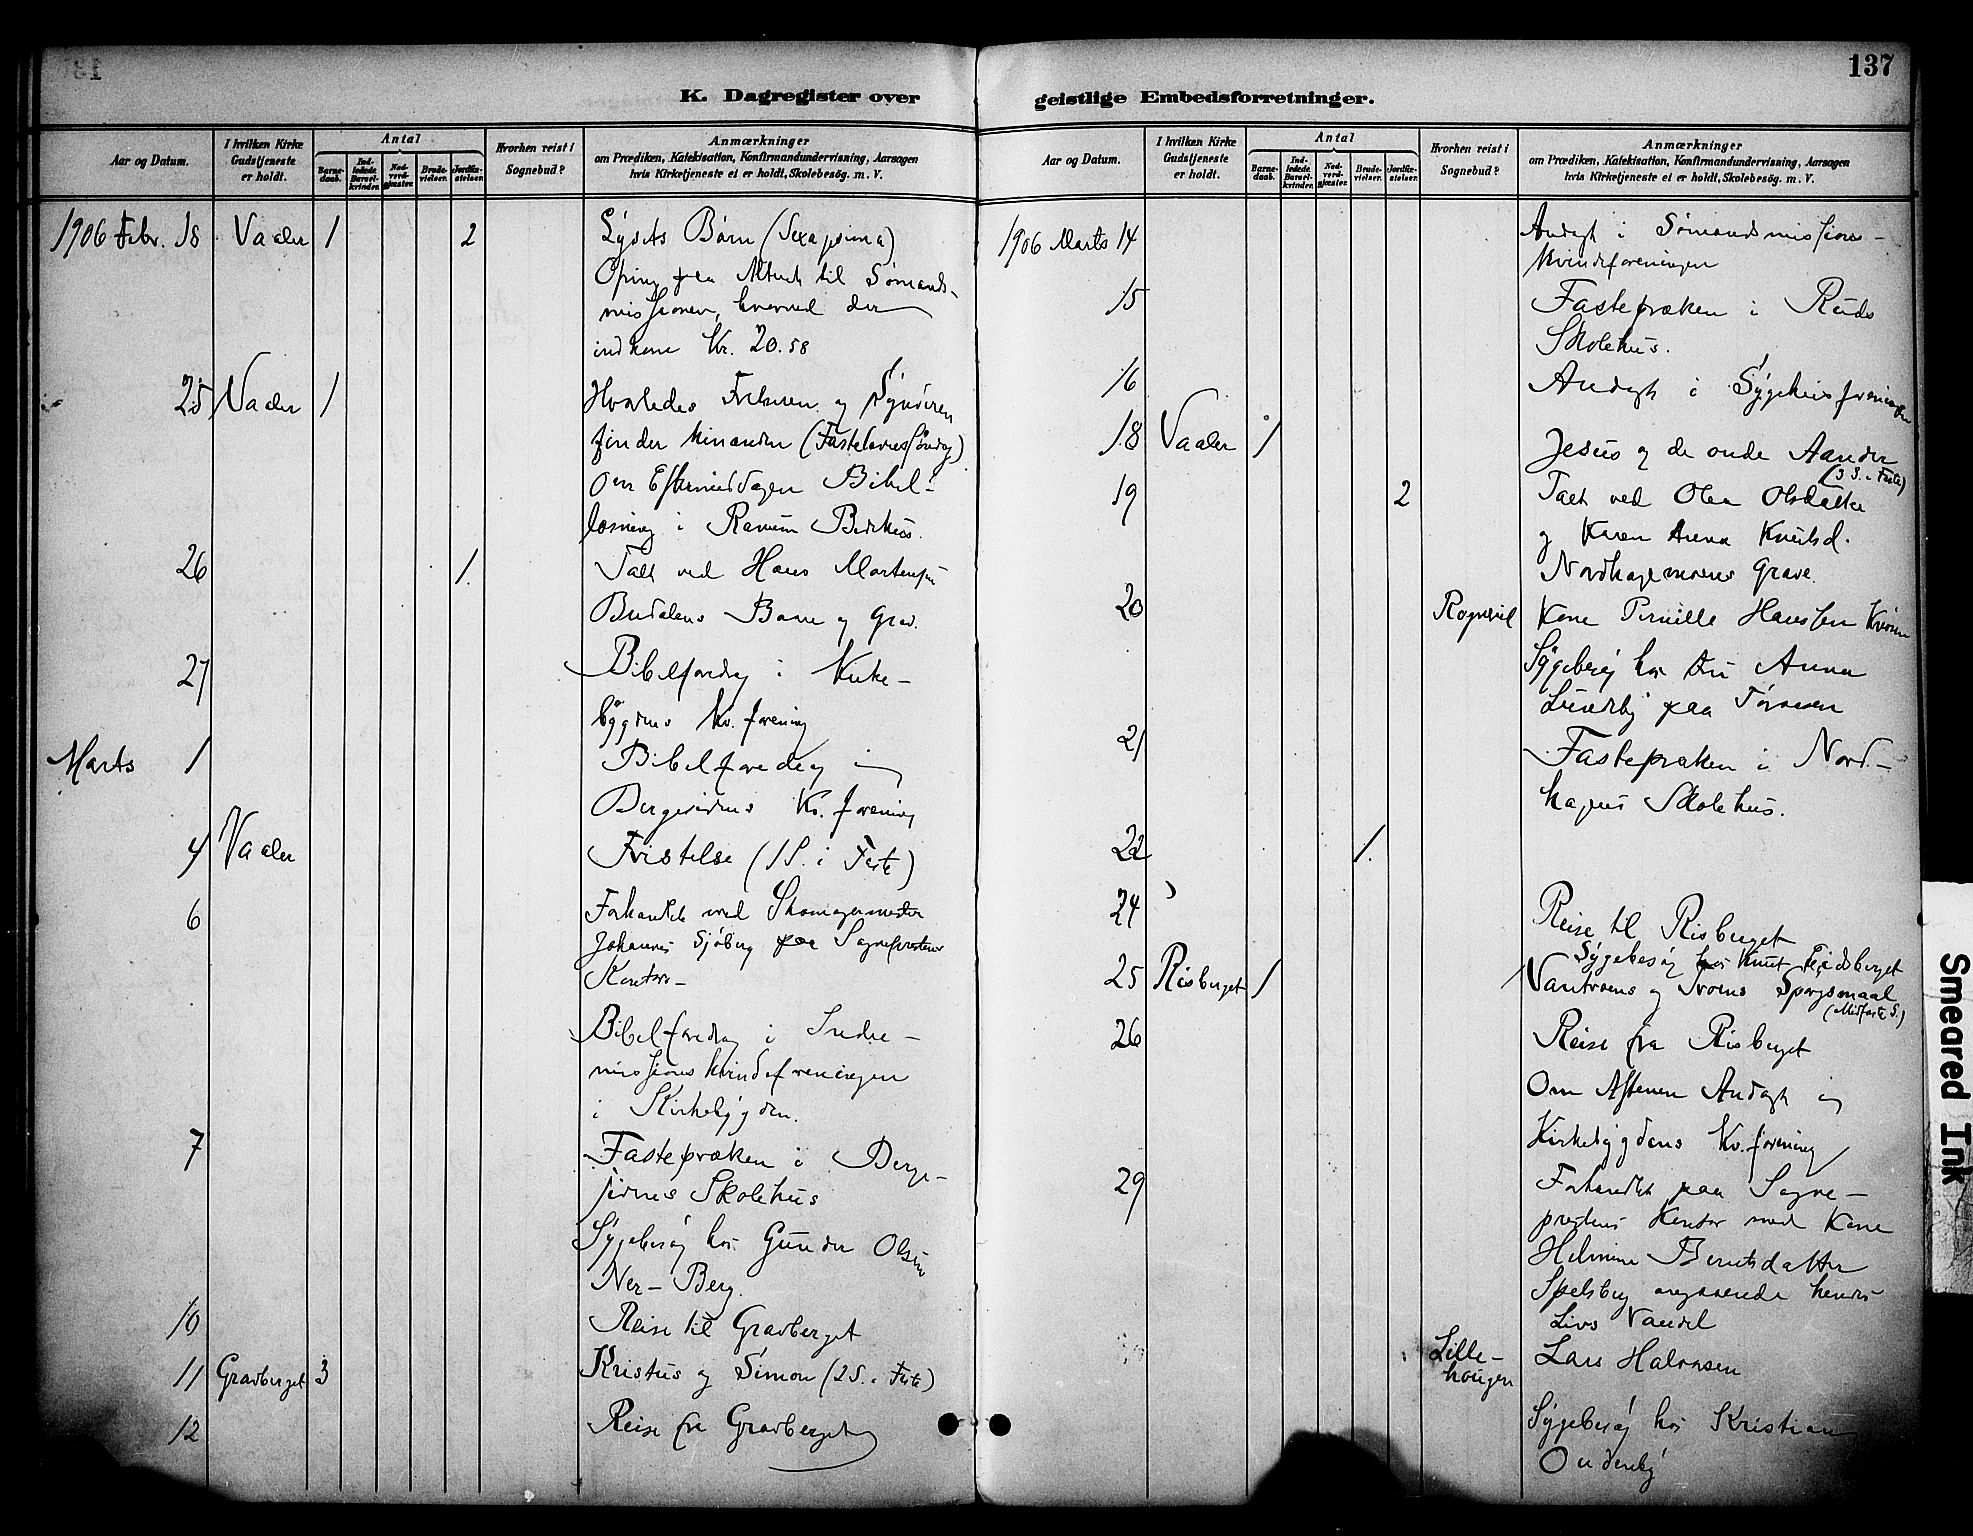 137
K. Dagregister over geistlige Embedsforretninger.
Aar og Datum.
I hvilken Kirke Gudstjeneste er holdt.
Antal
Barnedaab.
Indledede Barselkvinder.
Nadverdgjæster.
Brudevielser.
Jordfæstelser.
Hvorhen reist i Sognebud?
Anmærkninger
om Prædiken, Katekisation, Konfirmandundervisning, Aarsagen
hvis Kirketjeneste ei er holdt, Skolebesøg. m. V.
1906 Febr. 18 Vaaler 1 2 Lysets Børn (Sexagesima)
Ofring paa Alteret til Sømands-
missionen, hvorved der
indkom Kr. 20.58
25 Vaaler 1 Hvorledes Frelseren og Synderen
finder hinanden (Fastelavnssøndag)
Om Eftermiddagen Bibel-
læsning i Bedehus.
26 1. Talt ved Hans Martinsen
Baare og Grav.
27 Bibelforedrag i Kirke-
bygdens Kv.forening
Marts 1 Bibelforedrag i
Bergesidens Kv.forening
4 Vaaler Fristelse (1 S. i Faste)
6 Forhandlet med Skomagermester
Johannes Sjöberg paa Sogneprestens
Kontor-
Bibelforedrag i Indre-
missionskvindeforeningen
i Kirkebygden.
7 Fastepræken i Berge-
sidens Skolehus
Sygebesøg hos Gunder Olsen
Ner-Berg.
10 Reise til Gravberget
11 Gravberget 3 Kristus og Simon (2 S. i Faste)
12 Reise fra Gravberget
Aar og Datum.
I hvilken Kirke Gudstjeneste er holdt.
Antal
Barnedaab.
Indledede Barselkvinder.
Nadverdgjæster.
Brudevielser.
Jordfæstelser.
Hvorhen reist i Sognebud?
Anmærkninger
om Prædiken, Katekisation, Konfirmandundervisning, Aarsagen
hvis Kirketjeneste ei er holdt, Skolebesøg. m. V.
1906 Marts 14 Andagt i Sømandsmissions-
kvindeforeningen
15 Fastepræken i Ruds
Skolehus.
16 Andagt i Sygehusforeningen
18 Vaaler 1 Jesus og de onde Aander
(3 S. i Faste)
19 2 Talt ved Olea Olsdatter
og Karen Anna Knutsd.
Nordhagemoens Grave.
20 Kone Pernille Hanssen
Sygebesøg hos Anna
Lundby paa
21 Fastepræken i Nord-
hagens Skolehus.
22 1.
24 Reise til Risberget
Sygebesøg hos Knut
25 Risberget 1 Vantroens og Troens Spørgsmaal
(Midfaste S.)
26 Reise fra Risberget
Om Aftenen Andagt i
Kirkebygdens Kv.forening
29 Forhandlet paa Sogne-
prestens Kontor med Kone
Helmine Berntsdatter
Spelsberg angaaende hendes
Livs Vandel
Lille-
haugen Lars Halvorsen
Sygebesøg hos Kristian
Smeared Ink